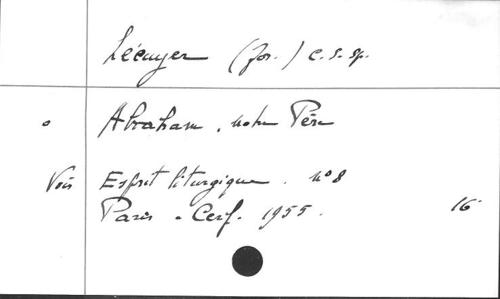 Lécuyer (Jos.) c.s.sp.
o Abraham, notre Père
Voir Esprit liturgique. n° 8
Paris - Cerf. 1955. 16